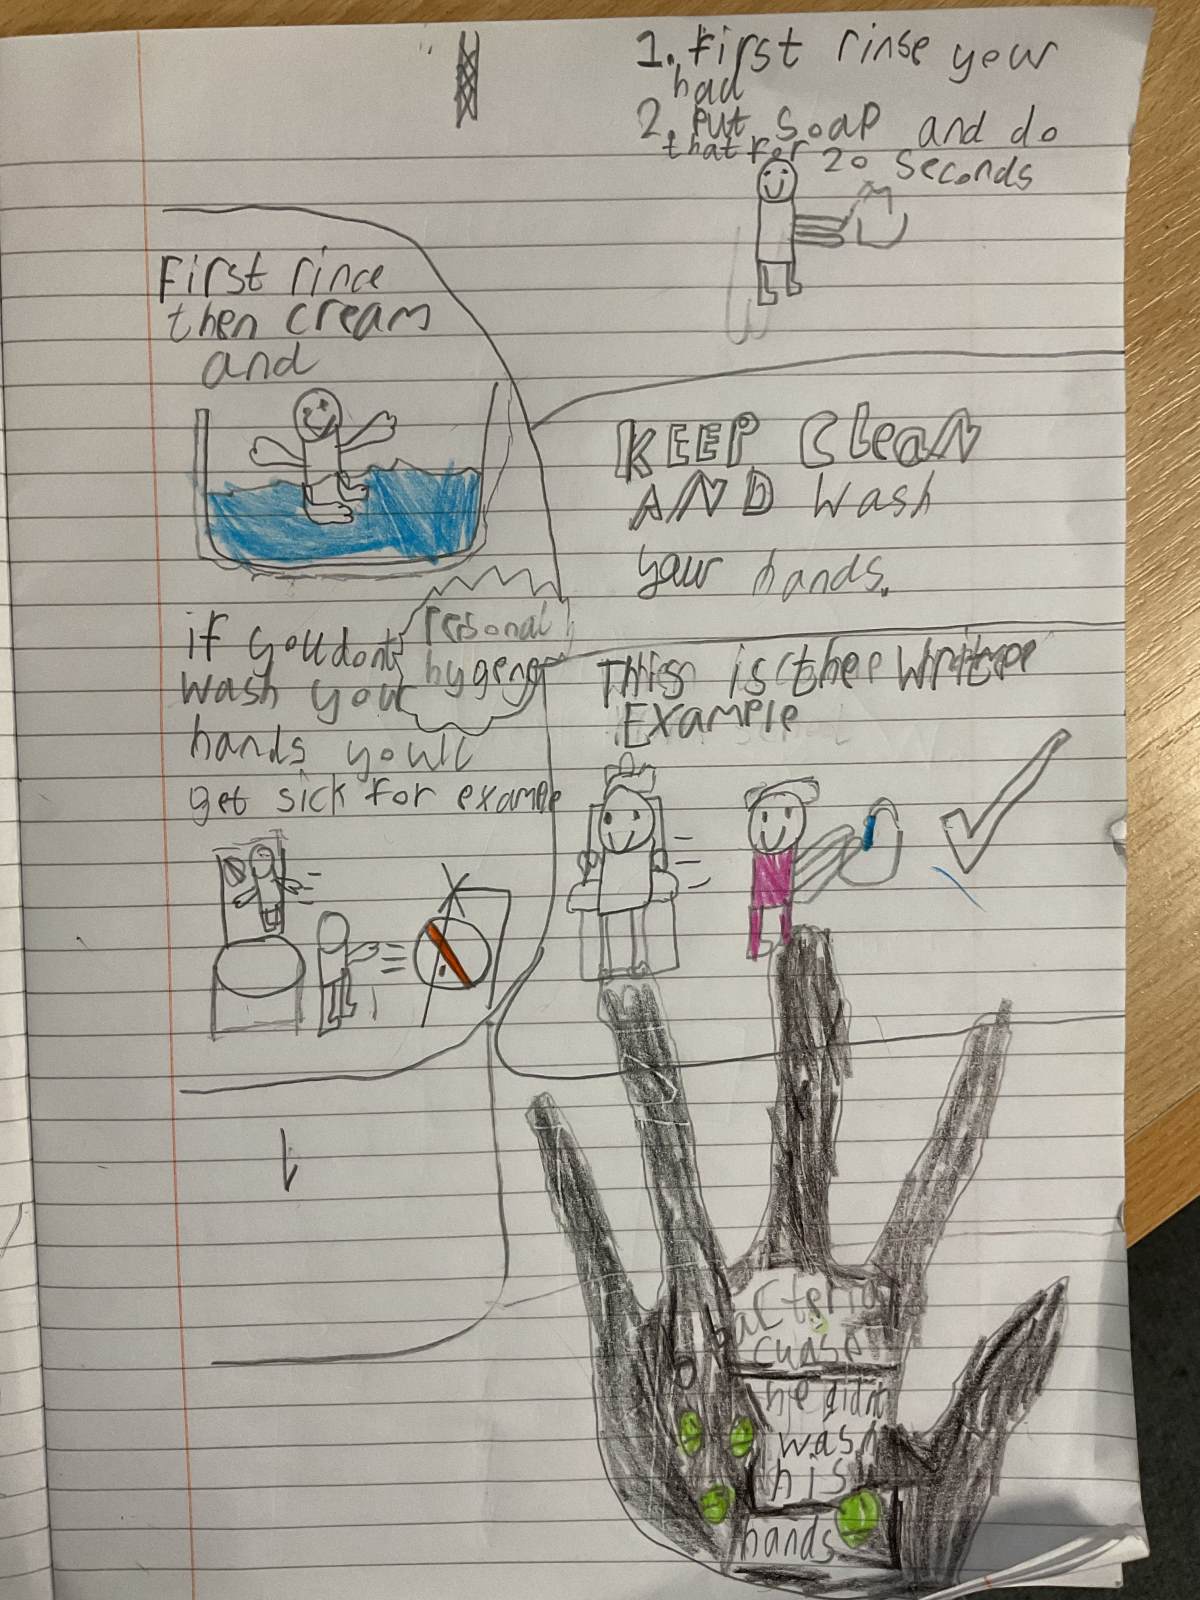 1. First rinse your
had
2. Put soap and do
that for 20 seconds
First rince
then cream
and
KEEP Clean
AND wash
your hands.
Personal
if you dont
wash your
hands youll
get sick for example
This is the
Example
bacteria
cuase
he didnt
wash
his
hands